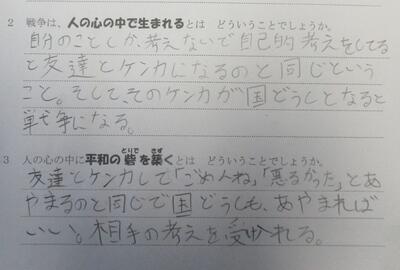 2 戦争は、人の心の中で生まれるとは どういうことでしょうか。
自分のことしか、考えないで自己的考えをしてる
と友達とケンカになるのと同じという
こと。そして、そのケンカが国どうしとなると
戦争になる。
3 人の心の中に平和の砦を築くとは どういうことでしょうか。
友達とケンカして「ごめんね」「悪るかった」とあ
やまるのと同じで国どうしも、あやまれば
いい。相手の考えを受かれる。